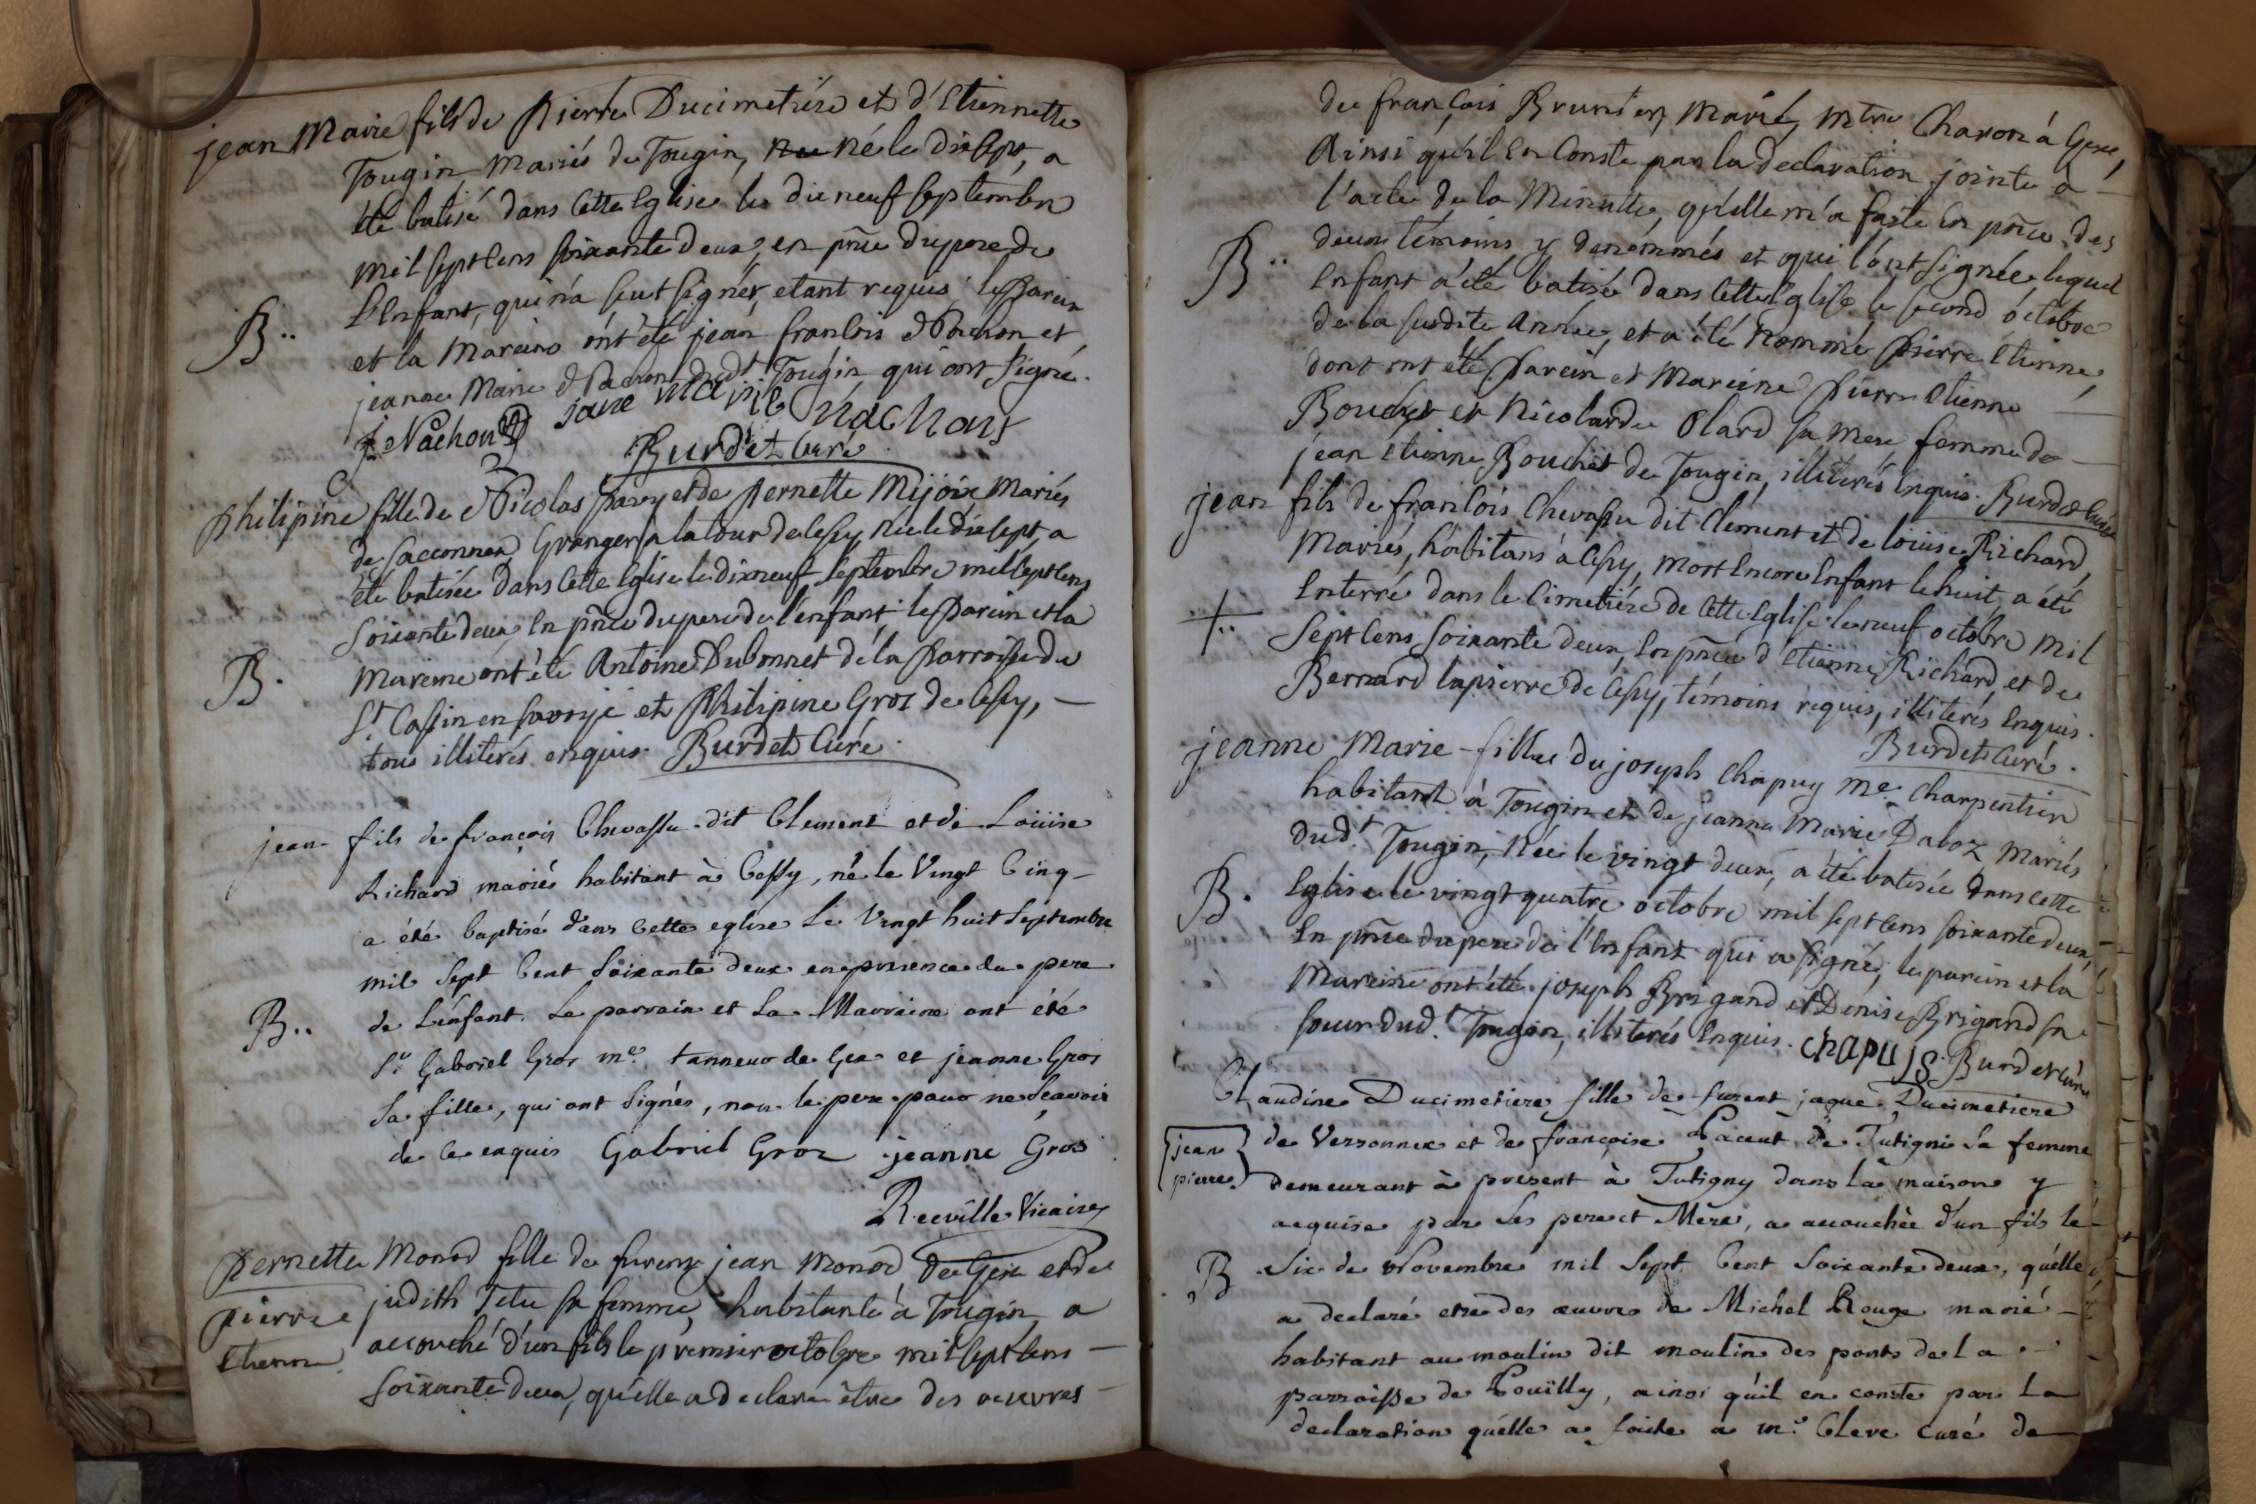 jean Marie fils de Pierre Ducimetiére et d'Etiennette
Tougin mariés de Tougin, né le dix sept, a
été batisé dans cette Eglise le dix neuf septembre
mil sept cens soixante deux, en pñce du pere de
l'Enfant, qui n'a sçut signér, etant requis; le Parein
B..
et la Mareine ont été jean francois Nachon et
jeanne Marie Nachon dudt Tougin qui ont signé.
f Nachon jane marie nachons
Burdet Curé
Philipine fille de Nicolas pavy et de Pernette Mijoix Mariés
de Sacconnex Grangers a la tour de Cessy, née le dix sept, a
été batisée dans cette Eglise le dixneuf septembre mil sept cens
soixante deux, en pñce du pere de l'enfant; le Parein et la
B.
Mareine ont été Antoine Dubonnet de la Parroisse de
St Cassin en savoye et Philipine Groz de Cessy, —
tous illiterés enquis. Burdet Curé.
jean fils de françois Chevassu dit Clement et de Loüise
Richard mariés habitant à Cessy, né le Vingt Cinq —
a été baptisé dans Cette eglise Le Vingt huit Septembre
mil Sept Cent Soixante deux en presence du pere
B..
de L'enfant. Le parrain et La Marraine ont été
Sr Gabriel Gros me tanneur de Gex et jeanne Gros
Sa fille, qui ont Signés, non le pere pour ne Sçavoir
de ce enquis Gabriel Groz jeanne Gros
Reeville Vicaire
Pernette Monod fille de furent jean Monod de Gex et de
Pierre
judith Tetu sa femme, habitante à Tougin, a
Etienne
accouché d'un fils le premier octobre mil sept cens —
soixante deux, qu'elle a declaré être des oeuvres —
de françois Brunier, Marié, mtre Charon á Gex,
Ainsi qu'il en Conste par la declaration jointe á —
l'acte de la Minutte, qu'elle m'a faite En pñce des
deux témoins y denommés et qui l'ont signée, lequel
B..
Enfant a été batisé dans cette Eglise le second octobre
de la susdite Année, et a été Nommé Pierre Etienne,
dont ont été Parein et Mareine Pierre Etienne —
Bouchet et Nicolarde Olard sa Mere, femme de —
jean Etienne Bouchet de Tougin, illiterés Enquis. Burdet Curé
jean fils de francois Chevassu dit Clement et de louise Richard,
Mariés, habitans à Cessy, mort Encore Enfant le huit, a été
Enterré dans le Cimetiére de cette Eglise le neuf octobre mil
+..
sept Cens soixante deux, En pñce d'Etienne Richard, et de
Bernard lapierre de Cessy, témoins requis, illiterés Enquis.
Burdet Curé.
jeanne Marie fille de joseph Chapuy Me Charpentier
habitant à Tougin et de jeanne Marie Daboz Mariés
dudt Tougin, Née le vingt deux, a été batisée dans cette
B.
Eglise le vingt quatre octobre mil sept cens soixante deux,
En pñce du pere de l'Enfant qui a signé; le parein et la
Mareine ont été joseph Brigand et Denise Brigand sa
soeur dudt Tougin, illiterés Enquis. chapuis Burdet curé
Claudine Ducimetiere fille de furent jaque Ducimetiere
jean
pierre
de Versonnex et de françoise Pacaut de Tutigni Sa femme
demeurant à present à Tutigny dans la maison y
acquise par Ses pere et Mère, a accouchée d'un fils le
B
Six de Novembre mil Sept Cent Soixante deux, qu'elle
a declaré etre des œuvres de Michel Rouge marié —
habitant au moulin dit moulin des ponts de La
parroisse de Poüilly, ainsi qu'il en conste par La
declaration qu'elle a faite a mr Cleve Curé de